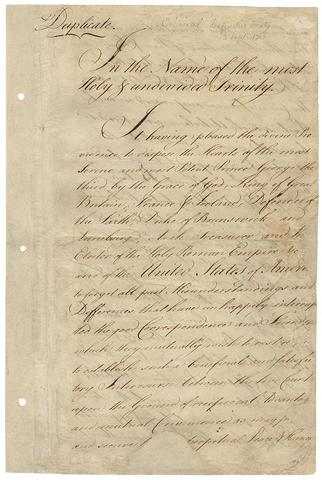 Duplicate.
In the Name of the most
Holy & undivided Trinity.
It having pleased the divine Pro
vidence to dispose the Hearts of the most
Serene and most Potent Prince George the
third, by the Grace of God, King of Great
Britain, France & Ireland, Defender of
the Faith, Duke of Brunswick and
Lunebourg, Arch Treasurer and
Elector of the Holy Roman Empire &c
and of the United States of America
to forget all past Misunderstandings and
Differences that have unhappily interrup
ted the good Correspondence and Friendship
which they mutually wish to restore; and
to establish such a beneficial and satisfac
tory Intercourse between the two Countries
upon the Ground of reciprocal Advantages
and mutual Convenience as may
and secure Perpetual Peace & Harmony